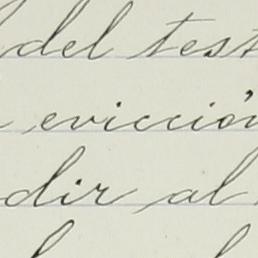 del test
evicción
dir al